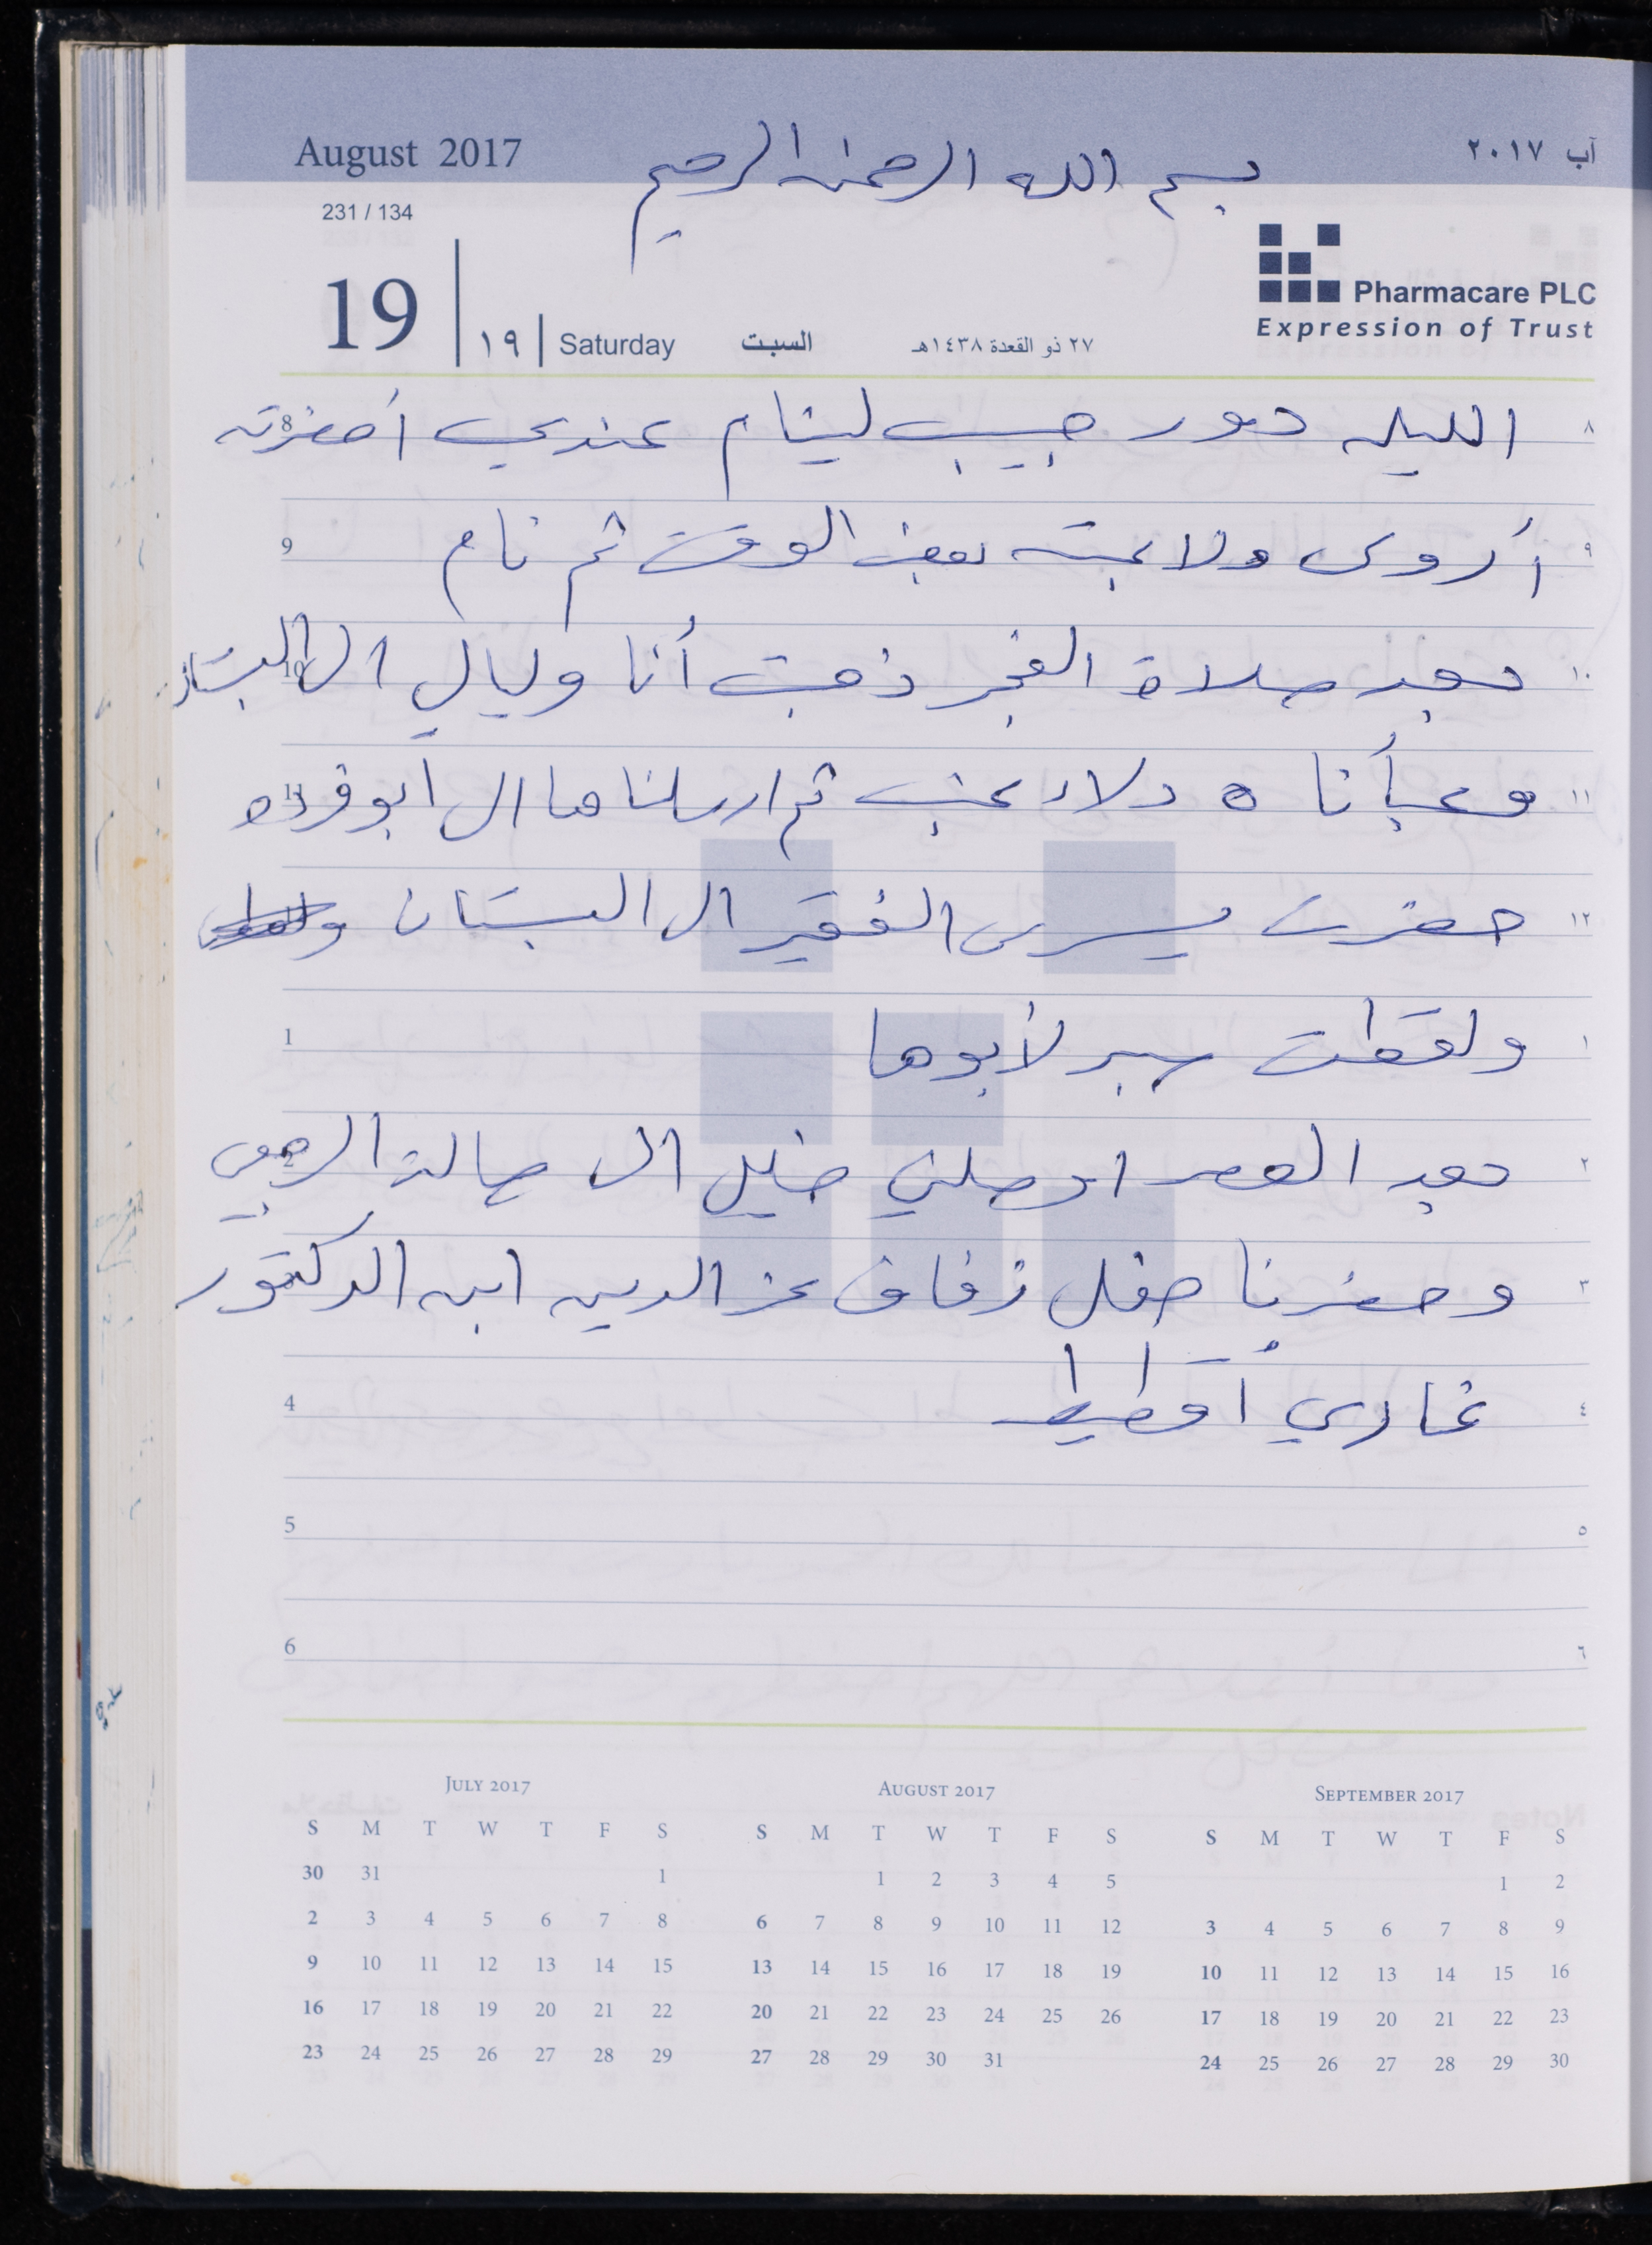 August 2017
بسم الله الرحمن الرحيم
آب ٢٠١٧
231 / 134
19 | ١٩ | Saturday السبت ٢٧ ذو القعدة ١٤٣٨هـ
Pharmacare PLC
Expression of Trust
8 الليله دور حبيب لينام عندي أحضرته ٨
9 أروى ولاعبته بعض الوقت ثم نام ٩
10 بعد صلاة الفجر ذهبت أنا وليالي الى البستان ١٠
11 وعبأنا ٥ دلاء عنب ثم ارسلناها الى ابو فرده ١١
حضرت يسرى الفقير الى البستان ١٢
1 ولقطت صبر لأبوها ١
2 بعد العصر اوصلني خليل الى صالة ٢
وحضرنا حفل زفاف عز الدين ابن الدكتور ٣
4 غازي أقطيط ٤
5 ٥
6 ٦
JULY 2017
S M T W T F S
30 31 1
2 3 4 5 6 7 8
9 10 11 12 13 14 15
16 17 18 19 20 21 22
23 24 25 26 27 28 29
AUGUST 2017
S M T W T F S
1 2 3 4 5
6 7 8 9 10 11 12
13 14 15 16 17 18 19
20 21 22 23 24 25 26
27 28 29 30 31
SEPTEMBER 2017
S M T W T F S
1 2
3 4 5 6 7 8 9
10 11 12 13 14 15 16
17 18 19 20 21 22 23
24 25 26 27 28 29 30